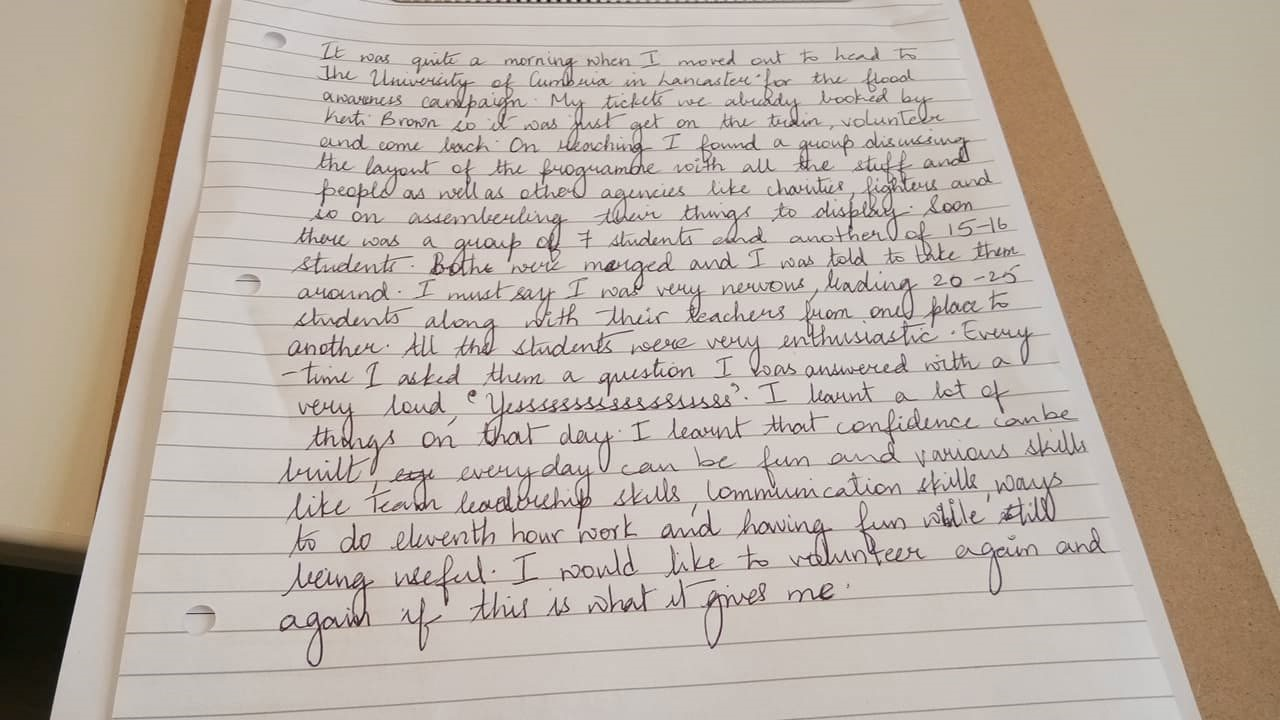 It was quite a morning when I moved out to head to
the University of Cumbria in Lancaster for the flood
awareness campaign. My tickets we already booked by
Kerti Brown so it was just get on the train, volunteer
and come back. On reaching I found a group discussing
the layout of the programme with all the stuff and
people as well as other agencies like charities, fighters and
so on assemberling their things to display. Soon
there was a group of 7 students and another of 15-16
students. Bothe were merged and I was told to take them
around. I must say I was very nervous, leading 20-25
students along with their teachers from one place to
another. All the students were very enthusiastic. Every
-time I asked them a question I was answered with a
very loud, "Yesssssssssssssssss". I learnt a lot of
things on that day. I learnt that confidence can be
built, everyday can be fun and various skills
like Team leadership skills, communication skills, ways
to do eleventh hour work and having fun while still
being useful. I would like to volunteer again and
again if this is what it gives me.